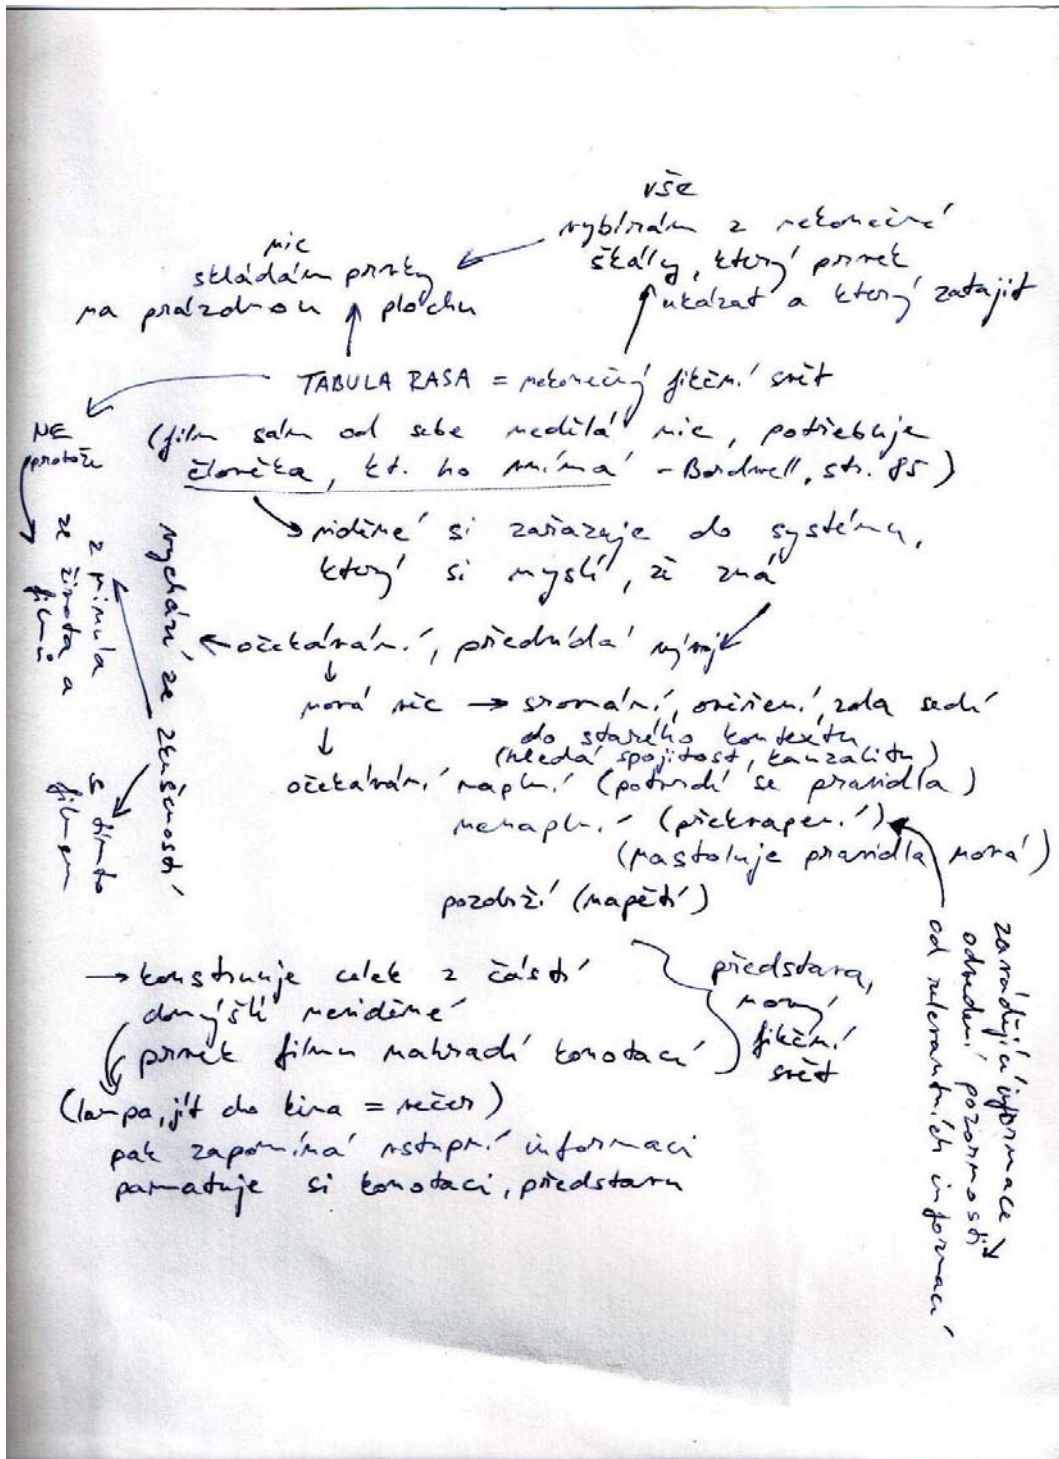 vše
vybírám z nekonečné
škály, který prvek
ukázat a který zatajit
nic
skládám prvky
na prázdnou plochu
TABULA RASA = nekonečný fikční svět
(film sám od sebe nedělá nic, potřebuje
člověka, kt. ho vnímá - Bordwell, str. 85)
NE
protože
viděné si zařazuje do systému,
který si myslí, že zná
očekávání, předvídá vývoj
vychází ze zkušenosti
z minula
ze života a
filmů
s tímto
filmem
nová věc → srovnání, ověření, zda sedí
do starého kontextu
(hledá spojitost, kauzalitu)
očekávání naplní (potvrdí se pravidla)
nenaplní (překvapení)
(nastoluje pravidla nová)
pozdrží (napětí)
zavádějící informace
odvedení pozornosti
od relevantních informací
→ konstruuje celek z částí
domýšlí neviděné
prvek filmu nahradí konotací
představa,
nový
fikční
svět
(lampa, jít do kina = večer)
pak zapomíná vstupní informaci
pamatuje si konotaci, představu